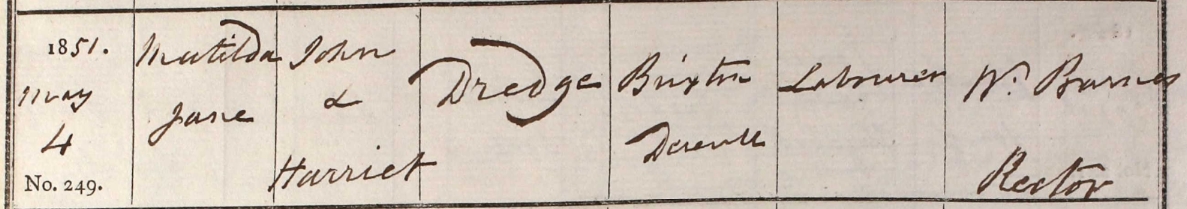 1851.
May
4
No. 249.
Matilda
Jane
John
&
Harriet
Dredge
Brixton
Deverill
Labourer
Wm. Barnes
Rector